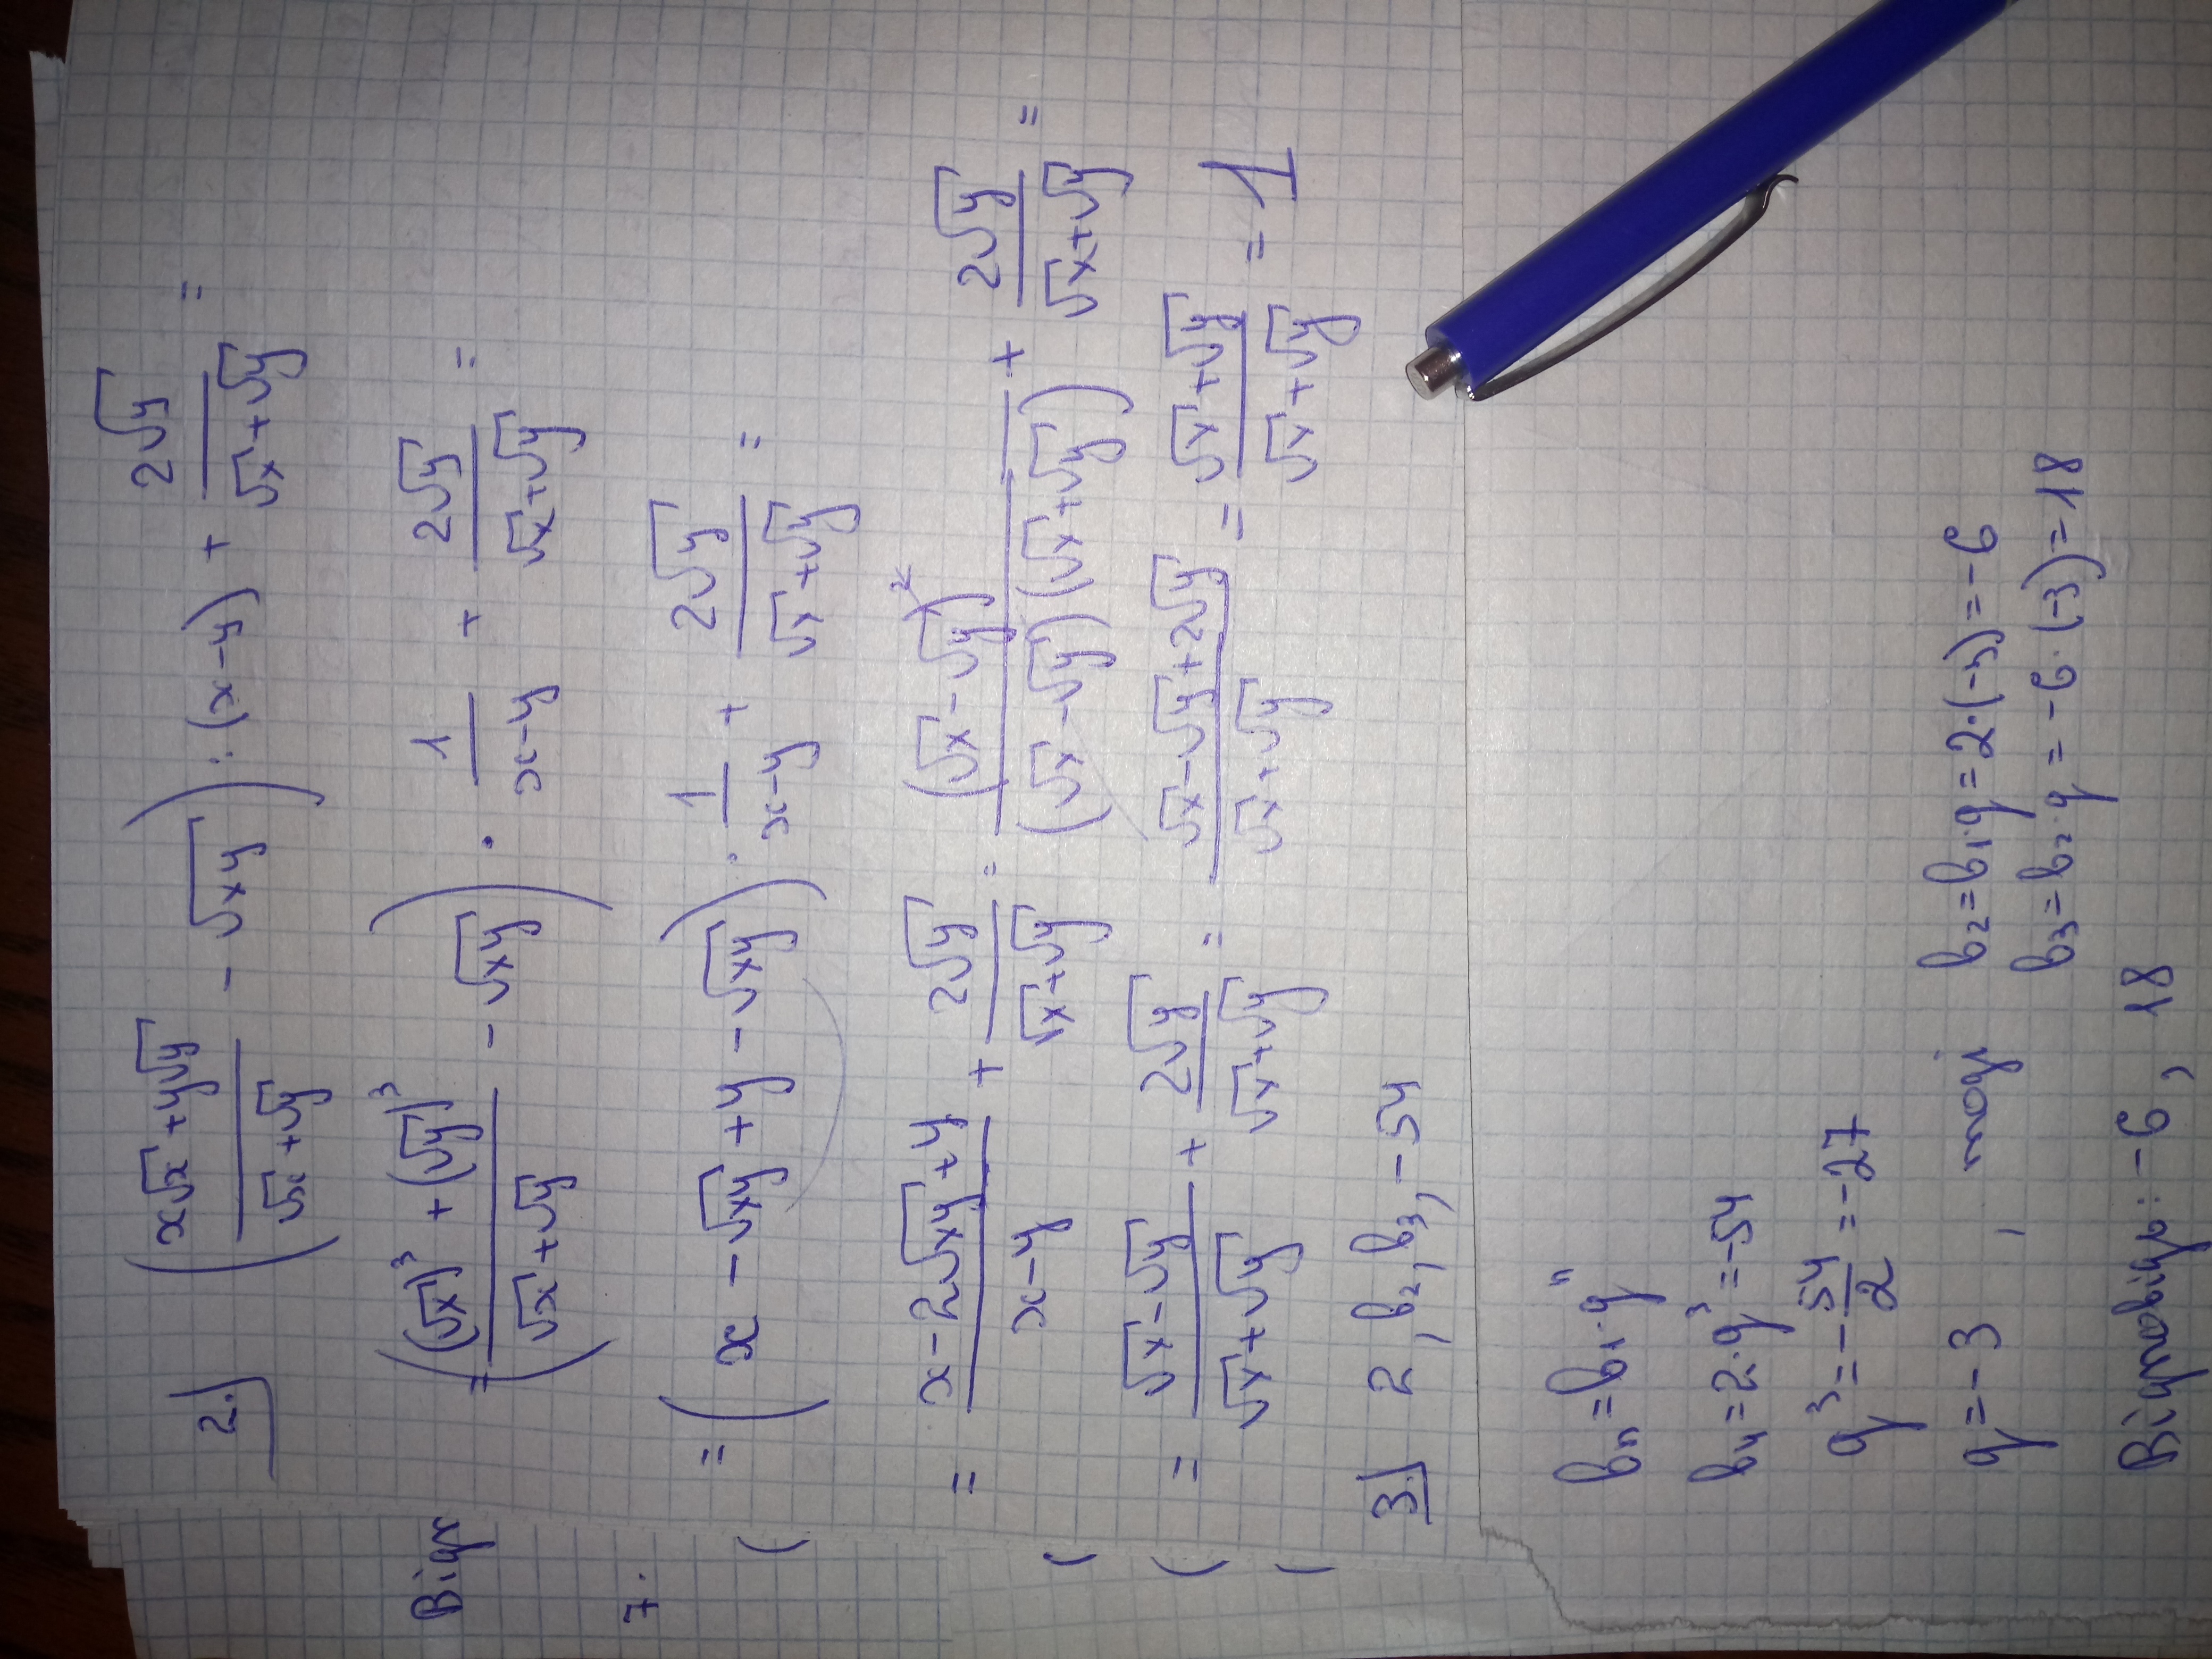 2.) (x√x + y√y / √x + √y - √xy) : (x-y) + 2√y / √x + √y =
= ((√x)³ + (√y)³ / √x + √y - √xy) · 1 / x-y + 2√y / √x+√y =
= (x - √xy + y - √xy) · 1 / x-y + 2√y / √x+√y =
= x - 2√xy + y / x-y + 2√y / √x+√y = (√x - √y)² / (√x - √y)(√x + √y) + 2√y / √x+√y =
= √x - √y / √x + √y + 2√y / √x+√y = √x - √y + 2√y / √x + √y = √x + √y / √x + √y = 1
3.) 2, b₂, b₃, -54
bₙ = b₁ · qⁿ
b₄ = 2 · q³ = -54
q³ = - 54 / 2 = -27
q = -3 , тоді b₂ = b₁ · q = 2·(-3) = -6
b₃ = b₂ · q = -6 · (-3) = 18
Відповідь: -6, 18
Відп
7.
(
(
(
(